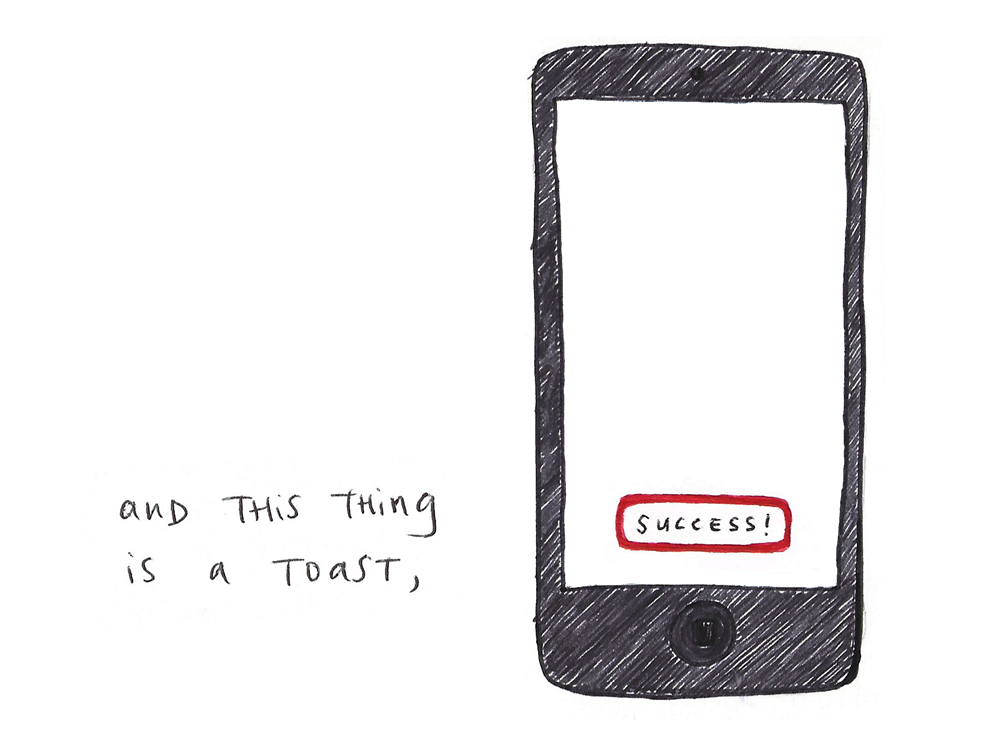 and THis THing
is a ToasT,
SUCCESS!